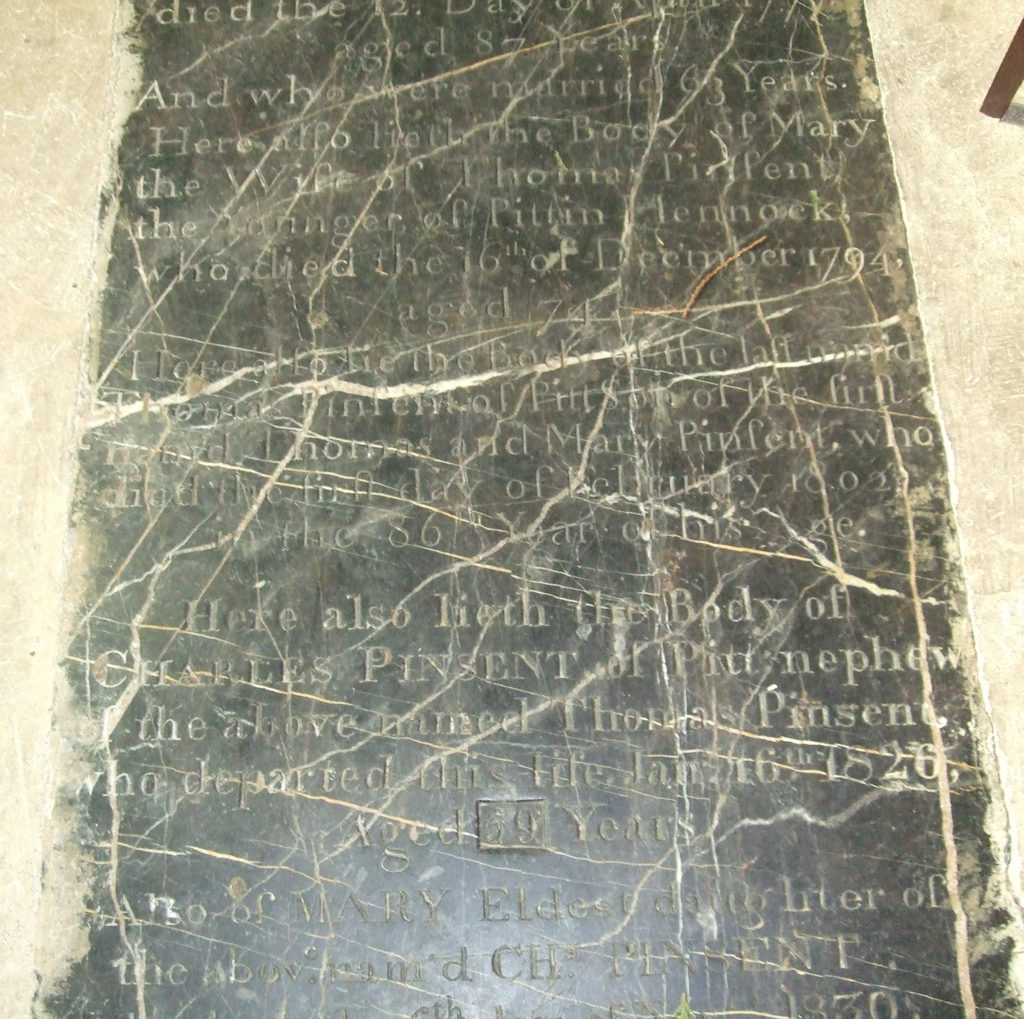 died the 12. Day of
aged 87 Years.
And who were married 63 Years.
Here also lieth the Body of Mary
the Wife of Thomas Pinsent
the Younger of Pitt in Hennock,
who died the 16th of December 1794,
aged 74.
Here also lie the Body of the last nam'd
Thomas Pinsent of Pitt Son of the first
nam'd Thomas and Mary Pinsent, who
died the first day of February 1802
in the 86 Year of his Age.
Here also lieth the Body of
CHARLES PINSENT of Pitt: nephew
of the above named Thomas Pinsent,
who departed this life Jan: 16th 1826,
Aged 59 Years
Also of MARY Eldest daughter of
the abov: nam'd CHs PINSENT
1830;